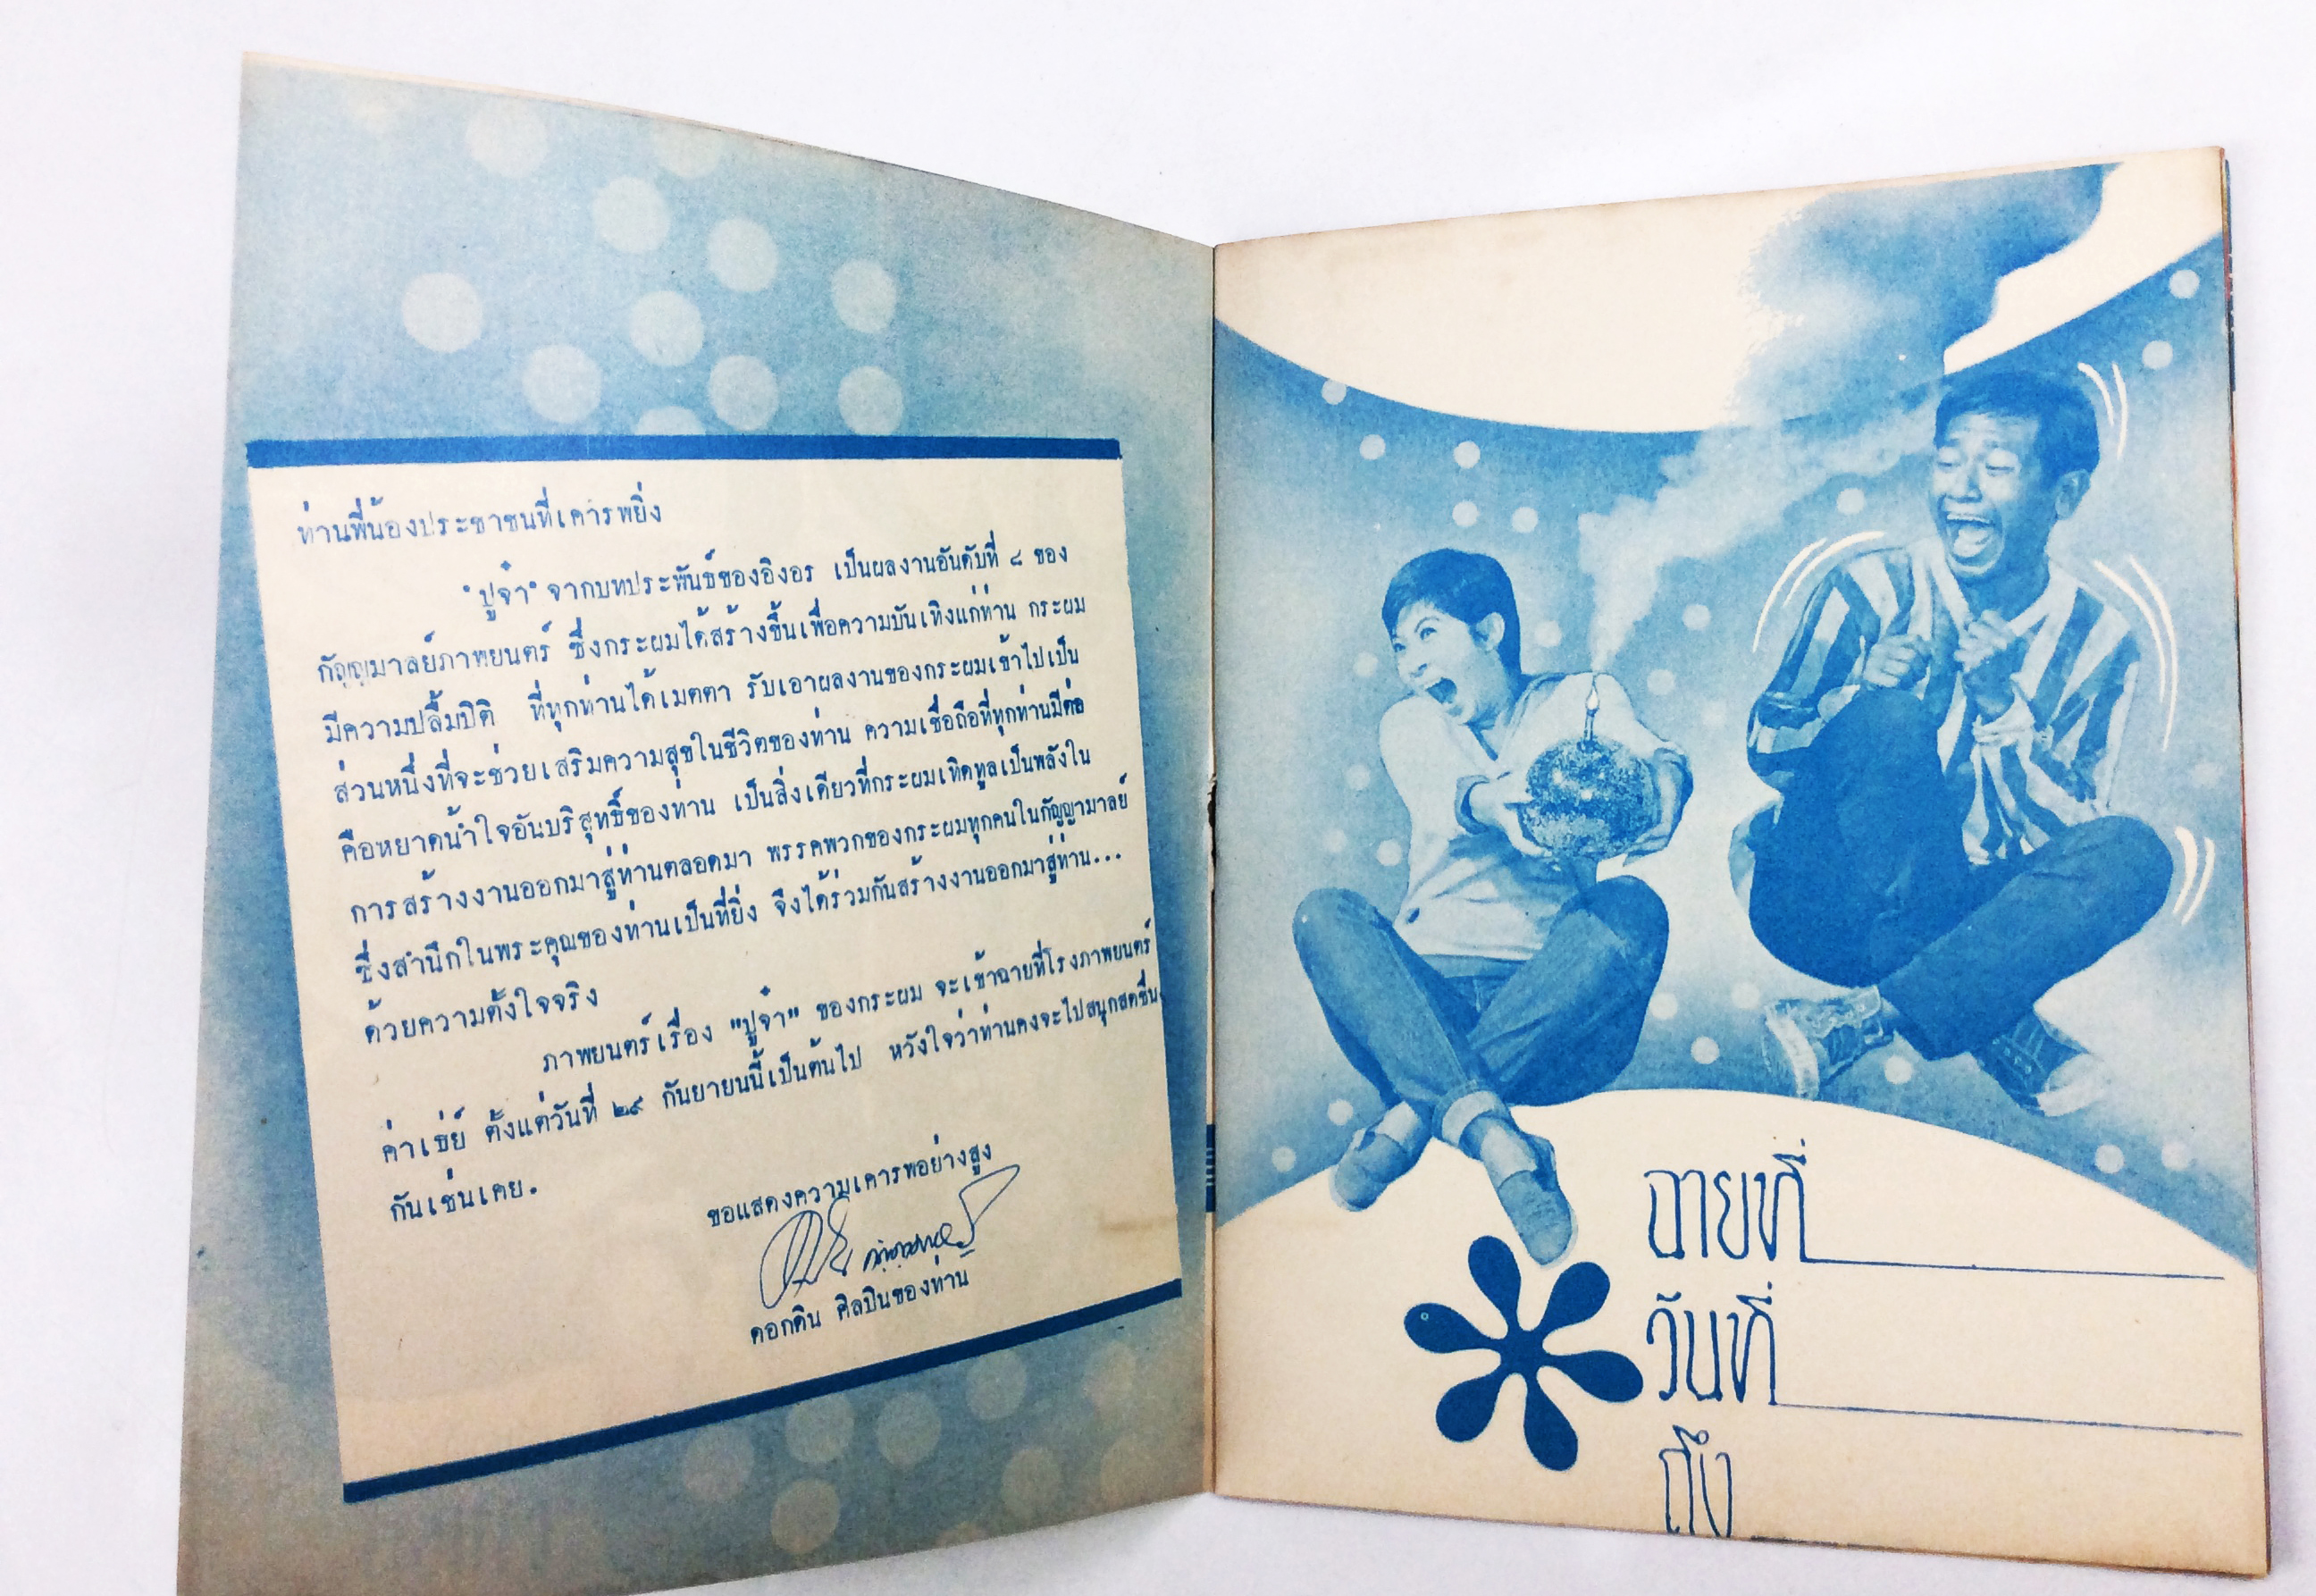 ท่านพี่น้องประชาชนที่เคารพยิ่ง
"ปูจ๋า" จากบทประพันธ์ของอิงอร เป็นผลงานอันดับที่ ๘ ของ
กัญญมาลย์ภาพยนตร์ ซึ่งกระผมได้สร้างขึ้นเพื่อความบันเทิงแก่ท่าน กระผม
มีความปลื้มปิติ ที่ทุกท่านได้เมตตา รับเอาผลงานของกระผมเข้าไปเป็น
ส่วนหนึ่งที่จะช่วยเสริมความสุขในชีวิตของท่าน ความเชื่อถือที่ทุกท่านมีต่อ
คือหยาดน้ำใจอันบริสุทธิ์ของท่าน เป็นสิ่งเดียวที่กระผมเทิดทูลเป็นพลังใน
การสร้างงานออกมาสู่ท่านตลอดมา พรรคพวกของกระผมทุกคนในกัญญามาลย์
ซึ่งสำนึกในพระคุณของท่านเป็นที่ยิ่ง จึงได้ร่วมกันสร้างงานออกมาสู่ท่าน...
ด้วยความตั้งใจจริง
ภาพยนตร์เรื่อง "ปูจ๋า" ของกระผม จะเข้าฉายที่โรงภาพยนตร์
ค่าเธ่ย์ ตั้งแต่วันที่ ๒๙ กันยายนนี้เป็นต้นไป หวังใจว่าท่านคงจะไปสนุกสดชื่น
กันเช่นเคย.
ขอแสดงความเคารพอย่างสูง
ดอกดิน ศิลปินของท่าน
ฉายที่
วันที่
ถึง